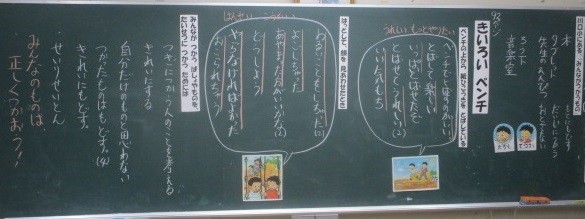 93ページ
川口小にある「みんながつかうもの」
本
もとにもどす
先生のえんぴつ
音楽室
きいろい ベンチ
ベンチの上から、紙ひこうきを とばしている
たかし
てつお
うれしい もっとやりたい
ベンチでとばすのがいい
とばして楽しい
いっぱいとばせたぞ
とばせてうれしい(2)
いい気もち
はっとして、顔を見あわせたとき
わるいことをしちゃった(11)
よごしちゃった
あやまったほうがいいかな(2)
どうしよう
やらなければよかった
おこられちゃう
みんなが つかう ばしょやものを、
たいせつに つかう ためには
つぎにつかう人のことを考える
きれいにする
自分だけのものと思わない
つかったものはもどす。(4)
きれいにもどす。
せいりせいとん
みんなのものは、
正しくつかおう!